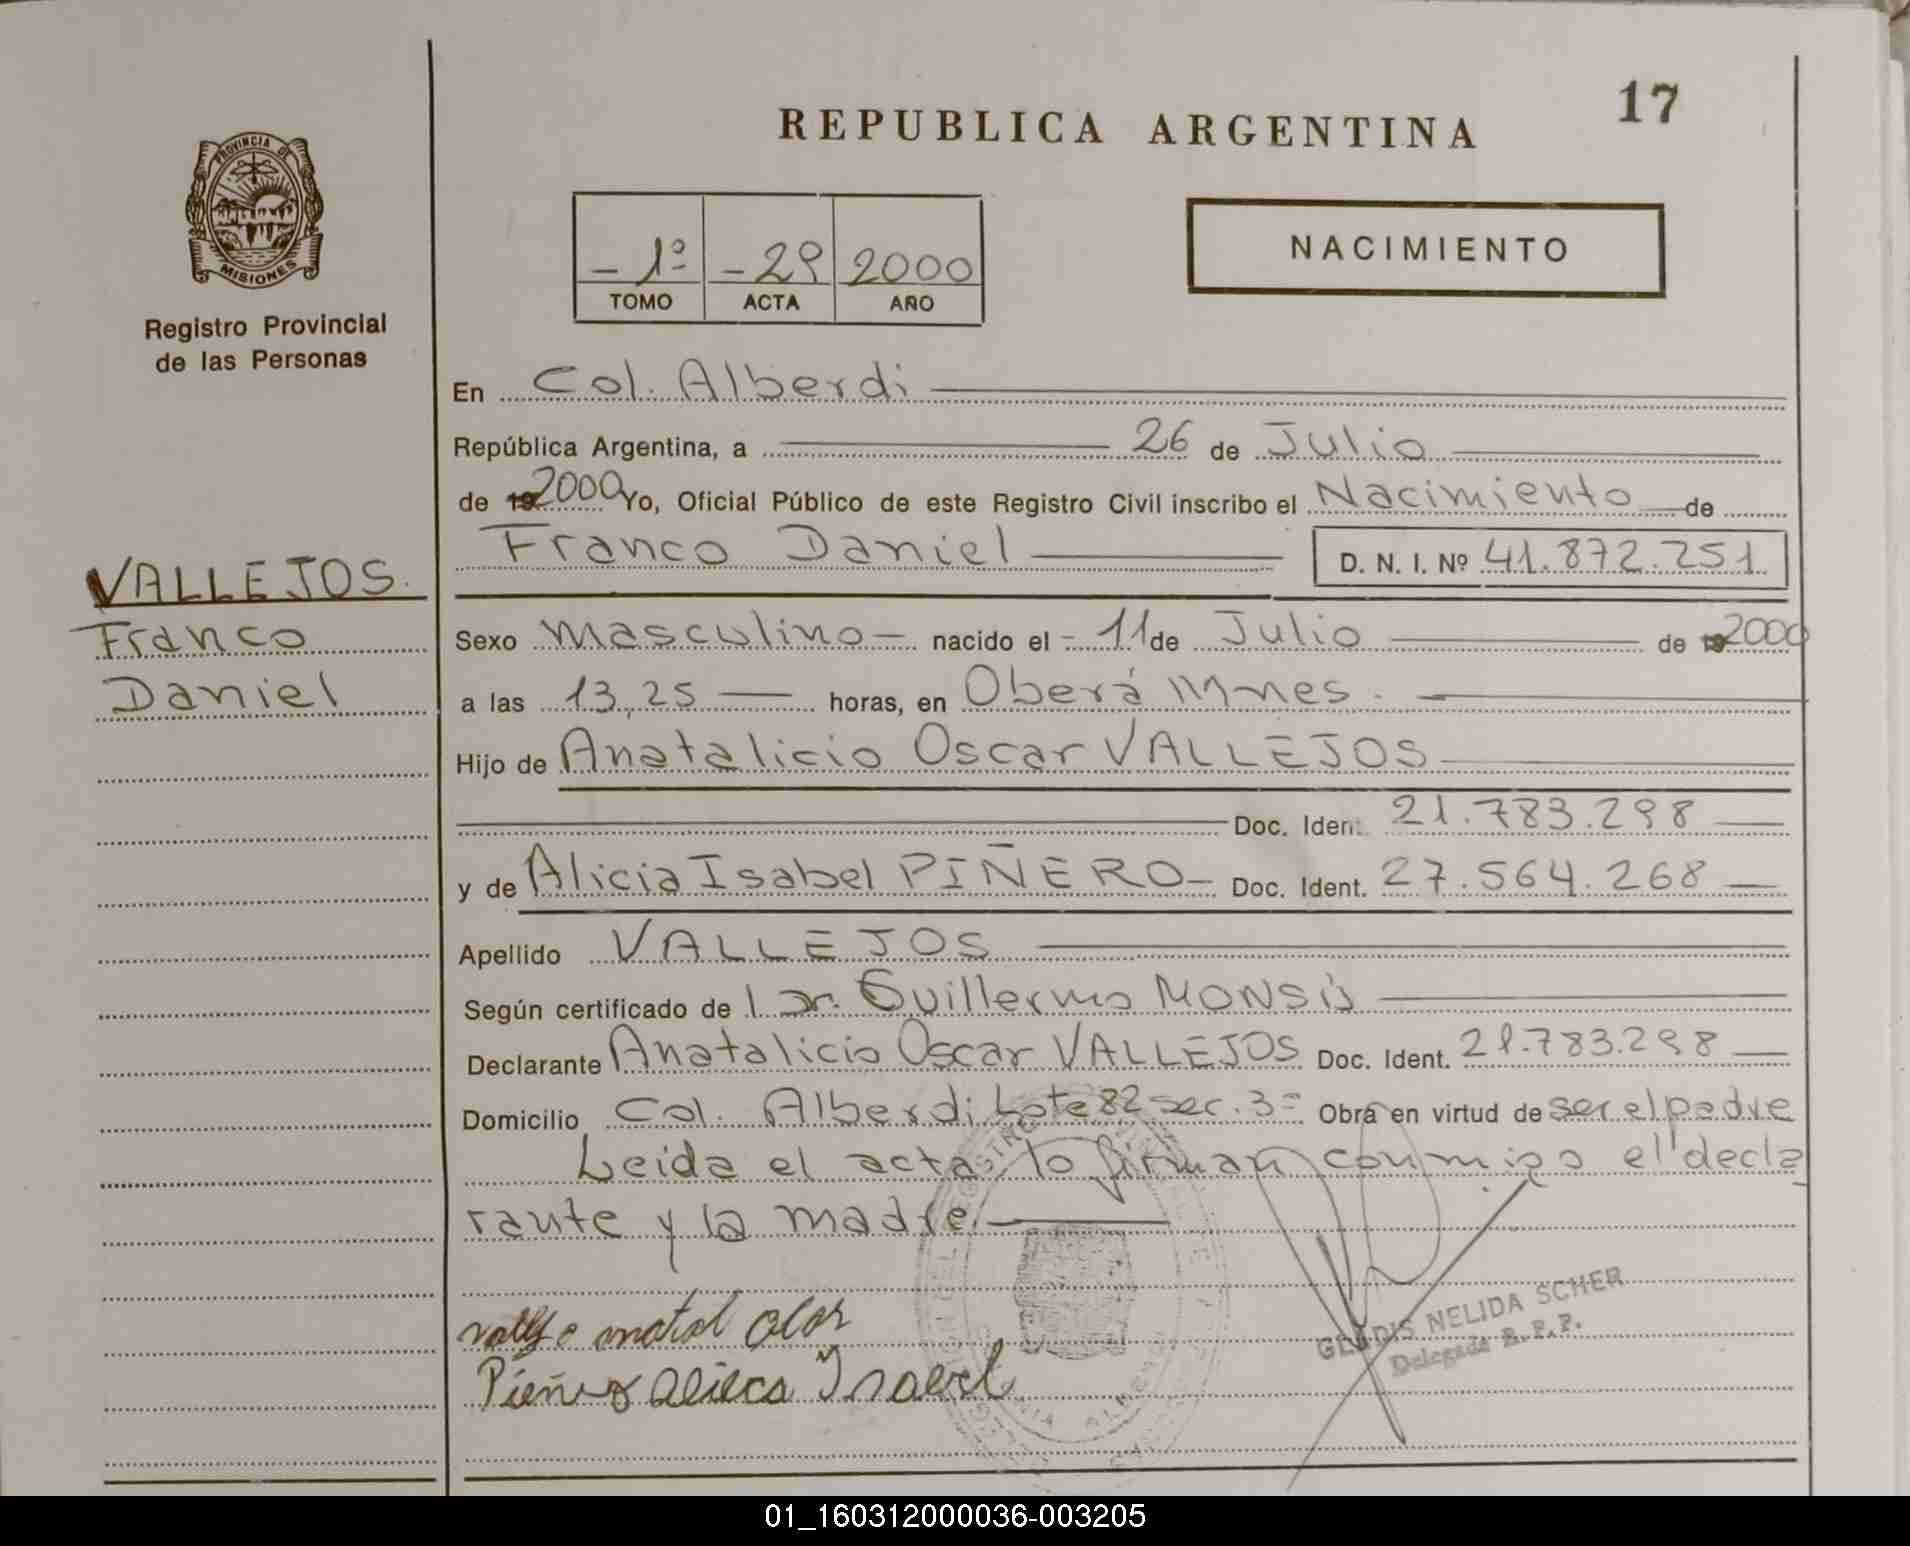 17
REPUBLICA ARGENTINA
PROVINCIA DE
MISIONES
Registro Provincial
de las Personas
- 1º - 29 2000
TOMO ACTA AÑO
NACIMIENTO
En Col. Alberdi
República Argentina, a 26 de Julio
de 19 2000 Yo, Oficial Público de este Registro Civil inscribo el Nacimiento de
Franco Daniel D. N. I. Nº 41.872.251
VALLEJOS.
Franco
Daniel
Sexo masculino - nacido el - 11 de Julio de 19 2000
a las 13,25 horas, en Oberá Mnes.
Hijo de Anatalicio Oscar VALLEJOS
Doc. Ident. 21.783.298
y de Alicia Isabel PIÑERO - Doc. Ident. 27.564.268
Apellido VALLEJOS
Según certificado de Dr. Guillermo MONSIS
Declarante Anatalicio Oscar VALLEJOS Doc. Ident. 21.783.298
Domicilio Col. Alberdi Lote 82 sec. 3= Obra en virtud de ser el padre
Leida el acta, lo firman conmigo el decla
rante y la madre.
GLADIS NELIDA SCHER
Delegada R.P.P.
Isabel
01_160312000036-003205